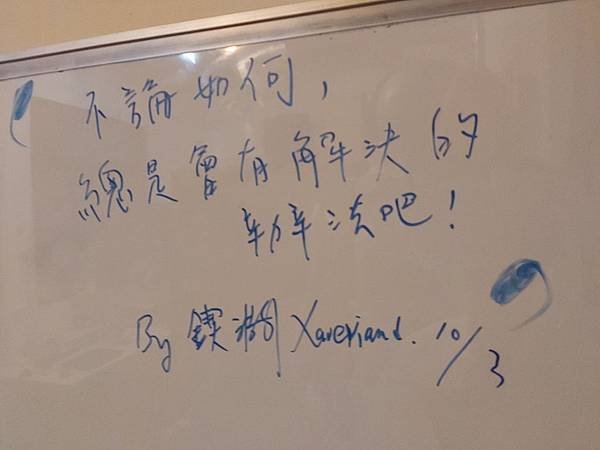 不論如何,
總是會有解決的
辦法吧!
By 鏌湖 Xaveriand. 10/3